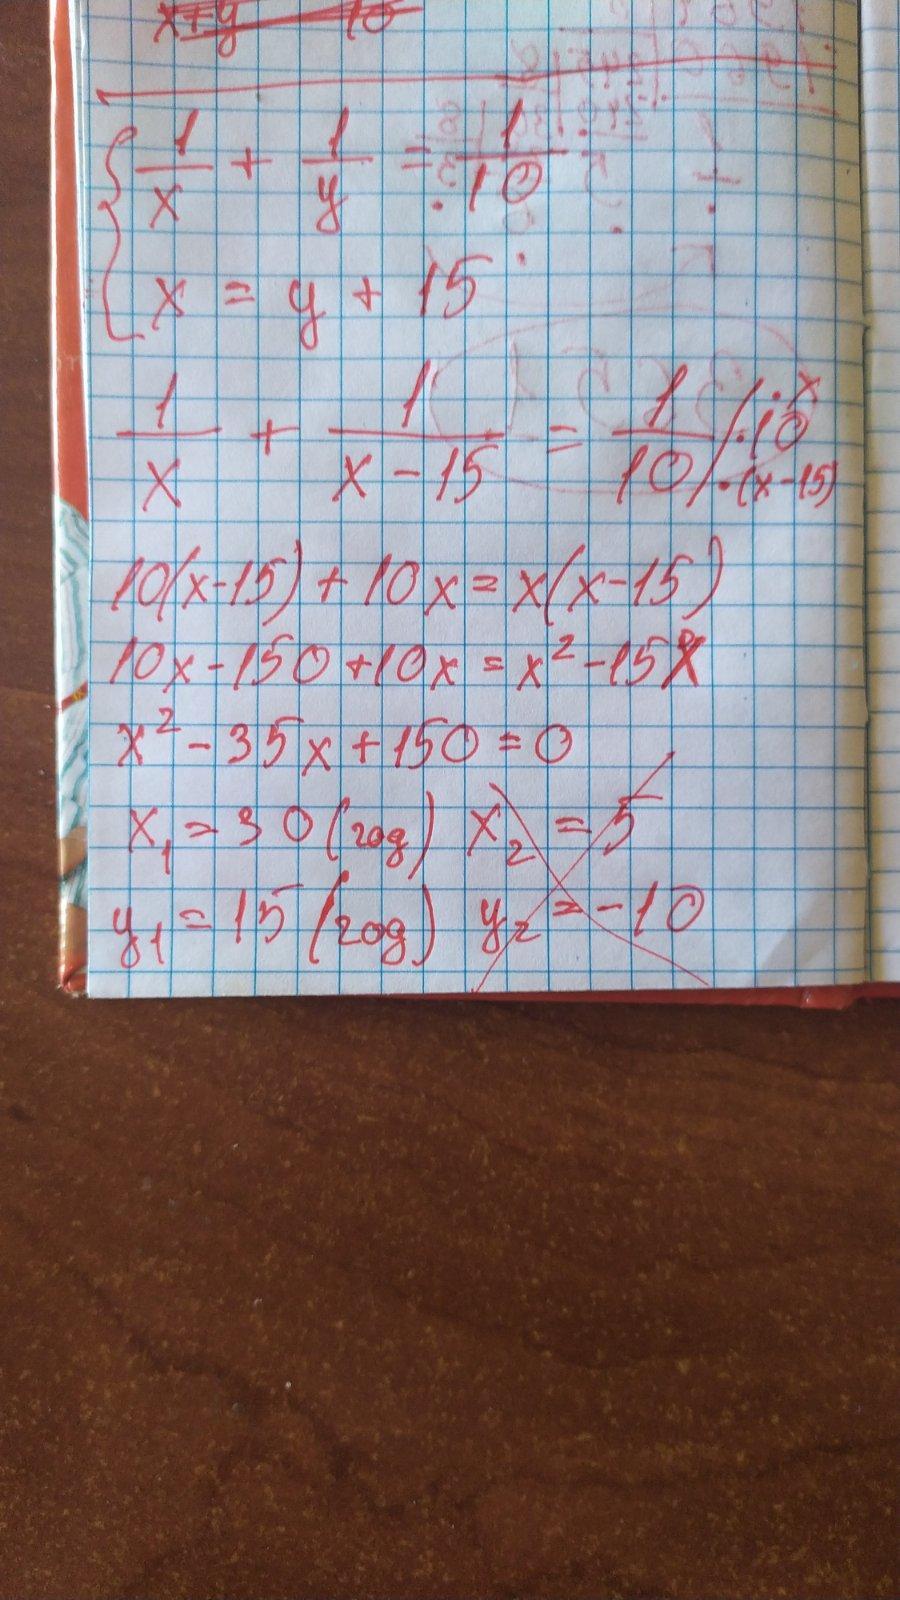 x+y 10
{ 1/x + 1/y = 1/10
x = y + 15
1/x + 1/(x-15) = 1/10 / ·x ·10 ·(x-15)
10(x-15) + 10x = x(x-15)
10x - 150 + 10x = x² - 15x
x² - 35x + 150 = 0
x₁ = 30 (год) x₂ = 5
y₁ = 15 (год) y₂ = -10